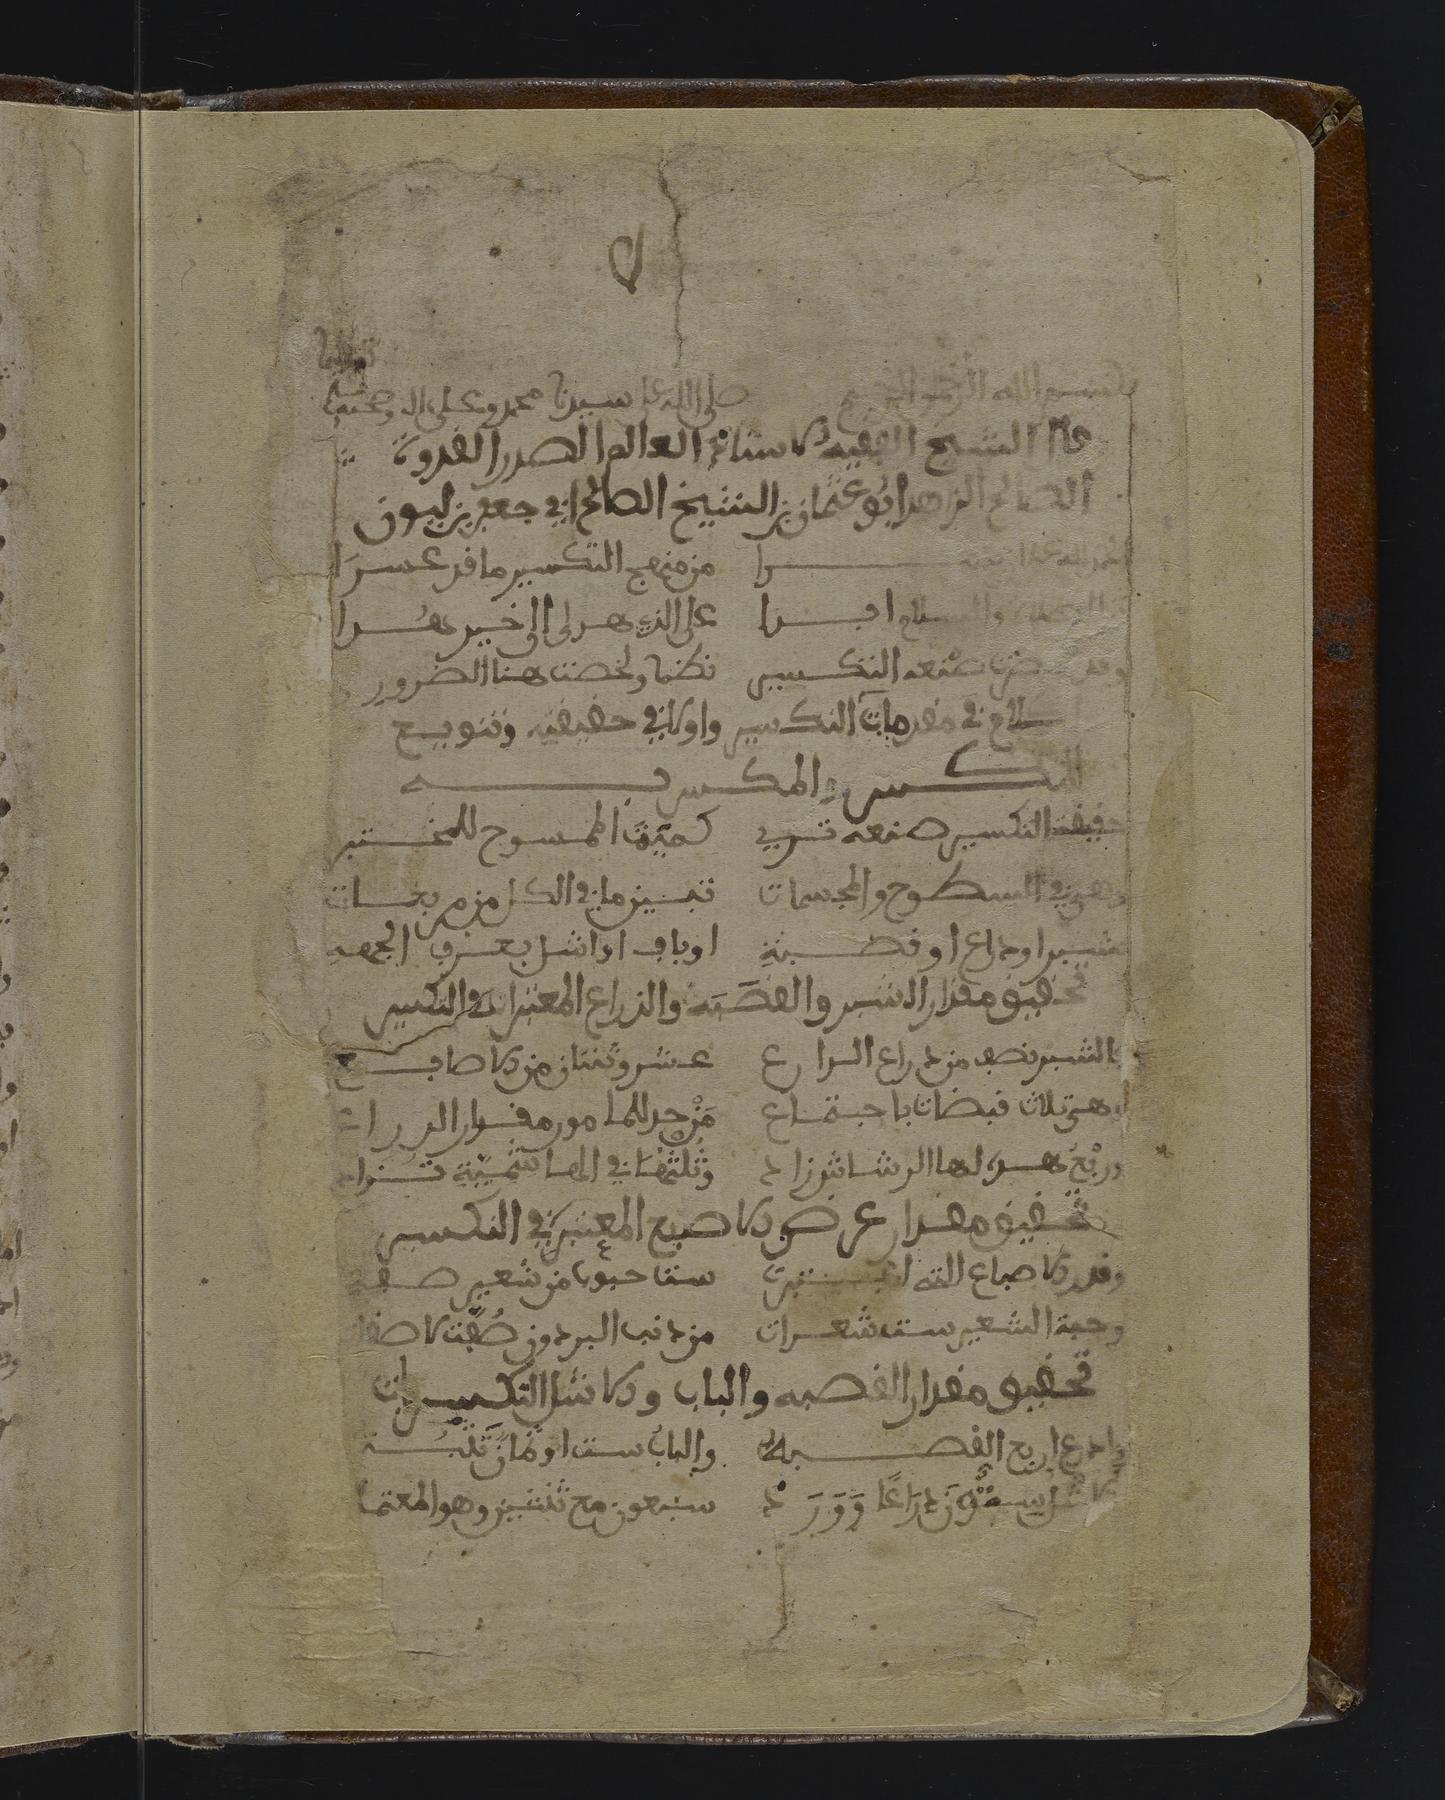 بسم الله الرحمن الرحيم صلى الله على سيدنا محمد وعلى اله وصحبه
قال الشيخ الفقيه الاستاذ العالم الصدر القدوة
الصالح الزاهد ابو عثمان بن الشيخ الصالح ابي جعفر بن ليون
الحمد لله من منهج التكسير ما قد عسرا
والسلام ابدا على الذي هدى الى خير هدا
صنعة التكسير نظما ولخصت هنا الضرور
كلام في مقدمات التكسير واولا في حقيقته وتنويع
التكسير والمكسر به
حقيقة التكسير صنعه تري كمية الممسوح للمختبر
وهي في السطوح والمجسمات تبيين ما في الكل من مربعات
بشبر او ذراع او قصبة او باب او اشل بعرف الجهه
تحقيق مقدار الشبر والقصبه والذراع المعتبرات في التكسير
فالشبر نصف من ذراع الذراع عشر وثنتان من الاصابع
وهي ثلاث قبضات باجتماع من حد للمامور مقدار الذراع
وربع هذه لها الرشاش زاد وثلثها في الهاشمية تزاد
تحقيق مقدار عرض الاصبع المعتبر في التكسير
وقدر الاصباع التي ست حبوب من شعير صفت
وحبة الشعير ست شعرات من ذنب البرذون صفت لاصقات
تحقيق مقدار القصبه والباب والاشل التكسيرات
واذرع اربع القصبه والباب ست او ثمان تثبت
الاشل ستون ذراعا وورد سبعون مع ثنتين وهو المعتمد